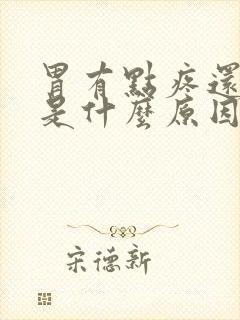 胃有點疼還
是什麼原因
宋德新